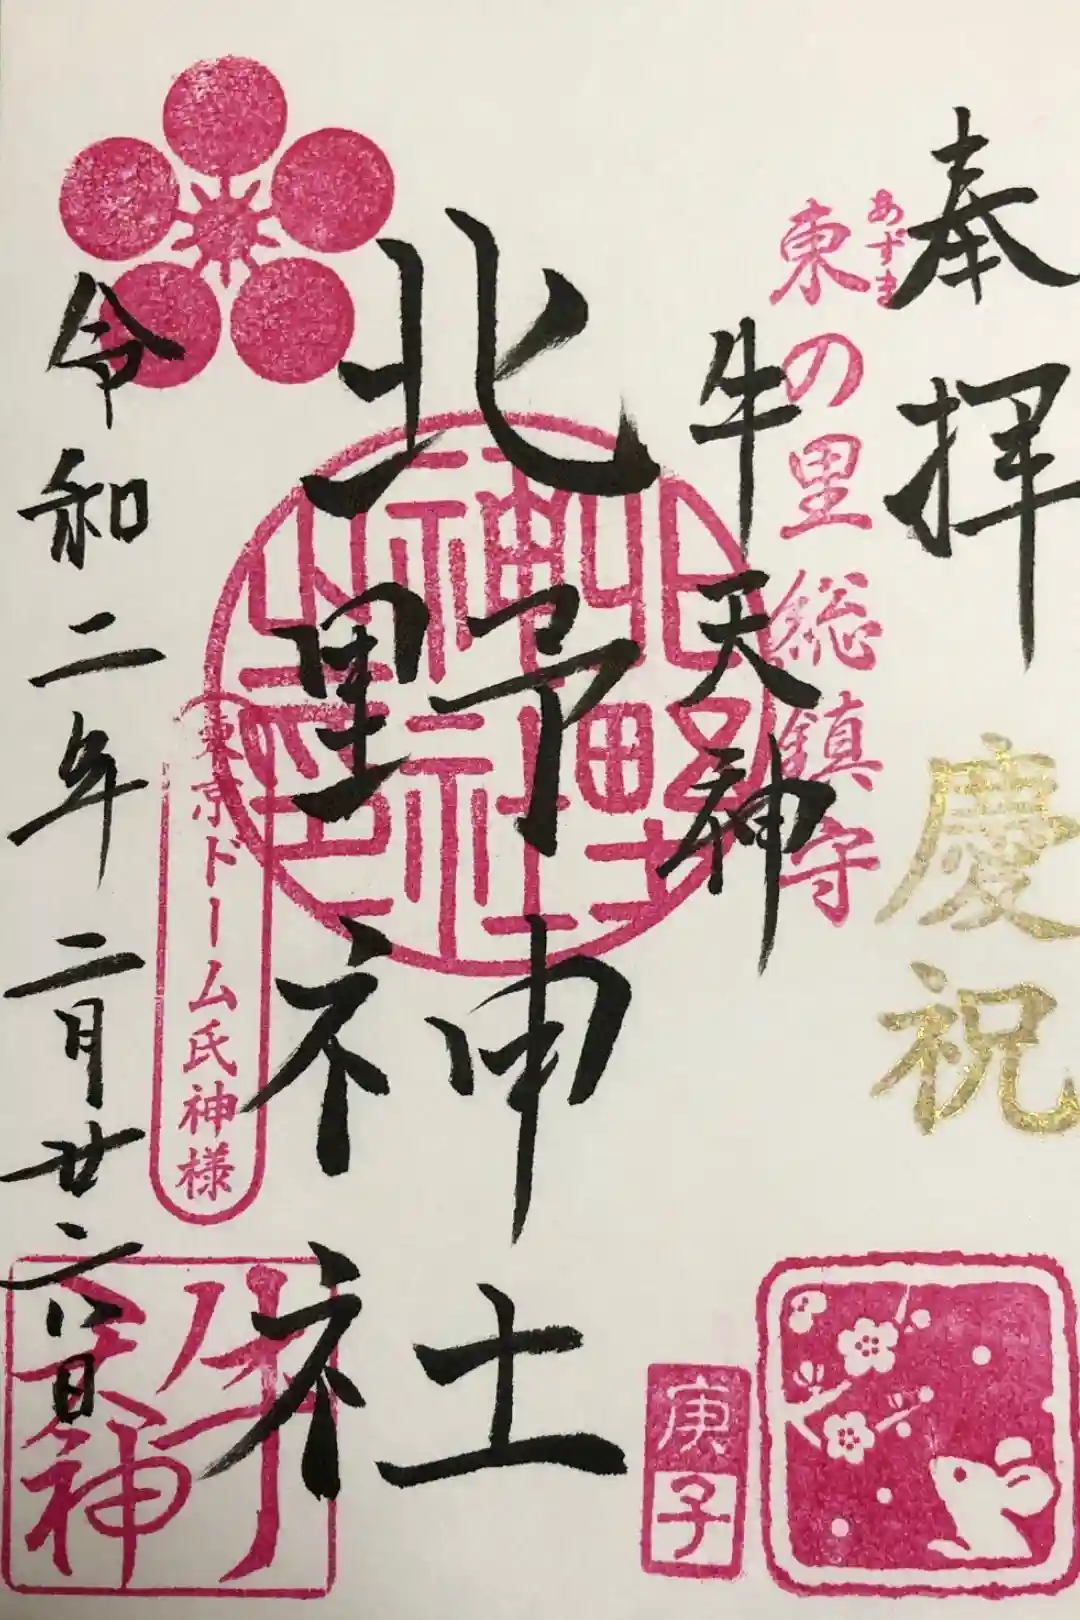 奉拝
慶祝
あずま
東の里総鎮守
牛天神
北野神社
北野神社
東京ドーム氏神様
令和二年二月廿六日
牛天神
庚子